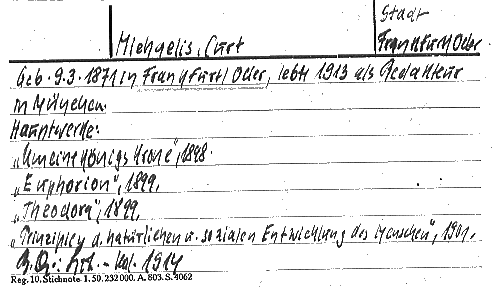 Stadt
Michaelis, Curt Frankfurt/Oder
Geb. 9.3.1871 in Frankfurt/Oder, lebte 1913 als Redakteur
in München.
Hauptwerke:
„Um eine Königskrone", 1898.
„Euphorion", 1899.
„Theodora", 1899.
„Prinzipien d. natürlichen u. sozialen Entwicklung des Menschen", 1901.
Lit. - Kal. 1914
Reg. 10. Stichnote 1. 50. 232000. A. 803. S. 4062